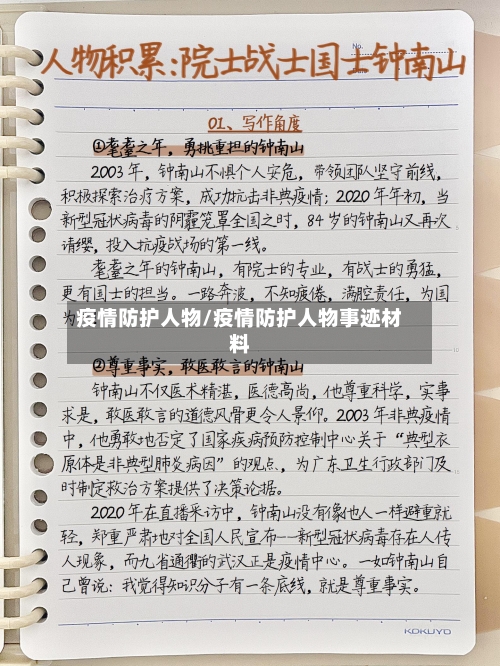 人物积累:院士战士国士钟南山
No.
01、写作角度
①耄耋之年，勇挑重担的钟南山
2003年，钟南山不惧个人安危，带领团队坚守前线，
积极探索治疗方案，成功抗击非典疫情；2020年年初，当
新型冠状病毒的阴霾笼罩全国之时，84岁的钟南山又再次
请缨，投入抗疫战场的第一线。
耄耋之年的钟南山，有院士的专业，有战士的勇猛，
更有国士的担当。一路奔波，不知疲倦，满腔责任，为国
为
疫情防护人物/疫情防护人物事迹材
料
②尊重事实，敢医敢言的钟南山
钟南山不仅医术精湛，医德高尚，他尊重科学，实事
求是，敢医敢言的道德风骨更令人景仰。2003年非典疫情
中，他勇敢地否定了国家疾病预防控制中心关于“典型衣
原体是非典型肺炎病因”的观点，为广东卫生行政部门及
时制定救治方案提供了决策论据。
2020年在直播采访中，钟南山没有像他人一样避重就
轻，郑重严肃地对全国人民宣布——新型冠状病毒存在人传
人现象，而九省通衢的武汉正是疫情中心。一如钟南山自
己曾说：我觉得知识分子有一条底线，就是尊重事实。
KOKUYO